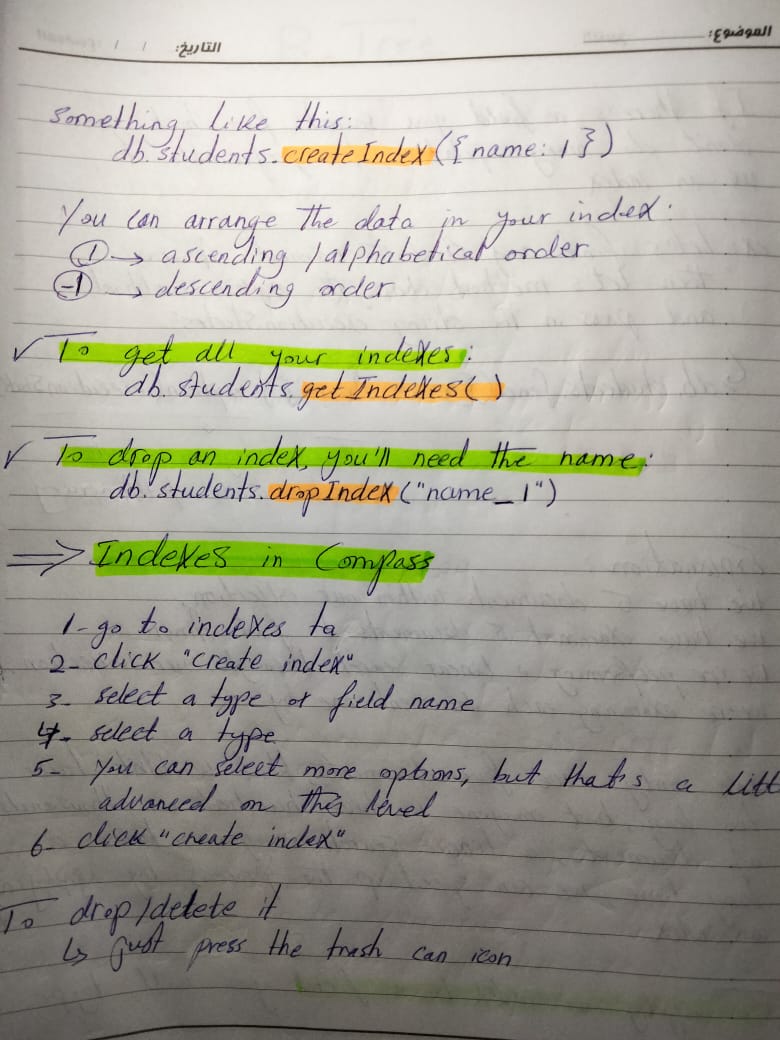 الموضوع:
التاريخ: / /
something like this:
db.students.createIndex({name: 1})
You can arrange the data in your index:
1 → ascending /alphabetical order
-1 → descending order
✓ To get all your indexes:
db.students.getIndexes()
✓ To drop an index, you'll need the name:
db.students.dropIndex("name_1")
⇒ Indexes in Compass
1- go to indexes ta
2- click "create index"
3- select a type or field name
4- select a type
5- You can select more options, but that's a litt
advanced on this level
6- click "create index"
To drop/delete it
↳ just press the trash can icon